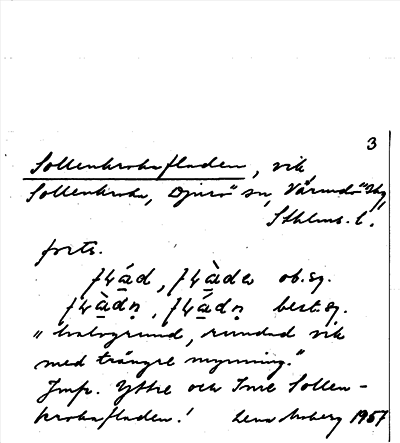 3
Sollenkrokafladen, vik
Sollenkroka, Djurö sn, Värmdö skg,
Sthlms. l.
forts.
flád, flàda ob.sg.
flàdṇ, fládṇ best.sg.
"halvgrund, rundad vik
med trängre mynning."
Jmf. Yttre och Inre Sollen-
krokafladen! 1957